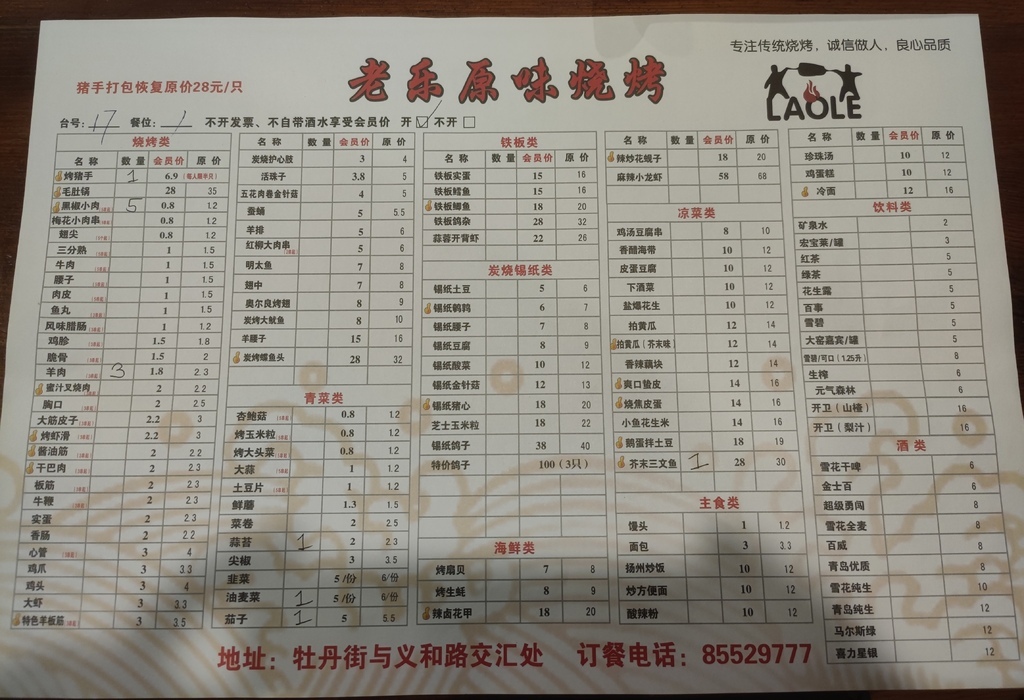 专注传统烧烤，诚信做人，良心品质
猪手打包恢复原价28元/只
老乐原味烧烤
LAOLE
台号: 17 餐位: 1 不开发票、不自带酒水享受会员价 开☑不开☐
烧烤类
名称 数量 会员价 原价
烤猪手 1 6.9 (每人限半只)
毛肚锅 28 35
黑椒小肉 5 0.8 1.2
梅花小肉串 0.8 1.2
翅尖 0.8 1.2
三分熟 1 1.5
牛肉 1 1.5
腰子 1 1.5
肉皮 1 1.5
鱼丸 1 1.5
风味腊肠 1 1.2
鸡胗 1.5 1.8
脆骨 1.5 2
羊肉 3 1.8 2.3
蜜汁叉烧肉 2 2.2
胸口 2 2.5
大筋皮子 2.2 3
烤虾滑 2.2 3
酱油筋 2 2.2
干巴肉 2 2.3
板筋 2 2.3
牛鞭 2 2.3
实蛋 2 2.3
香肠 2 2.2
心管 3 4
鸡爪 3 3.3
鸡头 3 4
大虾 3 3.3
特色羊板筋 3 3.5
名称 数量 会员价 原价
炭烧护心肢 3 4
活珠子 3.8 5
五花肉卷金针菇 4 5
蚕蛹 5 5.5
羊排 5 6
红柳大肉串 5 6
明太鱼 7 8
翅中 7 8
奥尔良烤翅 8 9
炭烤大鱿鱼 8 10
羊腰子 15 16
炭烤鲽鱼头 28 32
青菜类
杏鲍菇 0.8 1.2
烤玉米粒 0.8 1.2
烤大头菜 0.8 1.2
大蒜 1 1.2
土豆片 1 1.2
鲜蘑 1.3 1.5
菜卷 2 2.5
蒜苔 1 2 2.3
尖椒 3 3.5
韭菜 5/份 6/份
油麦菜 1 5/份 6/份
茄子 1 5 5.5
铁板类
名称 数量 会员价 原价
铁板实蛋 15 16
铁板鳕鱼 15 16
铁板鲫鱼 18 20
铁板鸽杂 28 32
蒜蓉开背虾 22 26
炭烧锡纸类
锡纸土豆 5 6
锡纸鹌鹑 6 7
锡纸腰子 7 8
锡纸豆腐 8 9
锡纸酸菜 10 12
锡纸金针菇 12 13
锡纸猪心 18 20
芝士玉米粒 18 22
锡纸鸽子 38 40
特价鸽子 100 (3只)
海鲜类
烤扇贝 7 8
烤生蚝 8 9
辣卤花甲 18 20
名称 数量 会员价 原价
辣炒花蚬子 18 20
麻辣小龙虾 58 68
凉菜类
鸡汤豆腐串 8 10
香醋海带 10 12
皮蛋豆腐 10 12
下酒菜 10 12
盐爆花生 10 12
拍黄瓜 12 14
拍黄瓜(芥末味) 12 14
香辣藕块 12 14
爽口蛰皮 14 16
烧焦皮蛋 14 16
小鱼花生米 14 16
鹅蛋拌土豆 18 19
芥末三文鱼 1 28 30
主食类
馒头 1 1.2
面包 3 3.3
扬州炒饭 10 12
炒方便面 10 12
酸辣粉 10 12
名称 数量 会员价 原价
珍珠汤 10 12
鸡蛋糕 10 12
冷面 12 16
饮料类
矿泉水 2
宏宝莱/罐 3
红茶 5
绿茶 5
花生露 5
百事 5
雪碧 5
大窑嘉宾/罐 5
雪碧/可口(1.25升) 8
生榨 6
元气森林 6
开卫(山楂) 16
开卫(梨汁) 16
酒类
雪花干啤 6
金士百 6
超级勇闯 8
雪花全麦 8
百威 8
青岛优质 8
雪花纯生 10
青岛纯生 12
马尔斯绿 12
喜力星银 12
地址：牡丹街与义和路交汇处 订餐电话：85529777